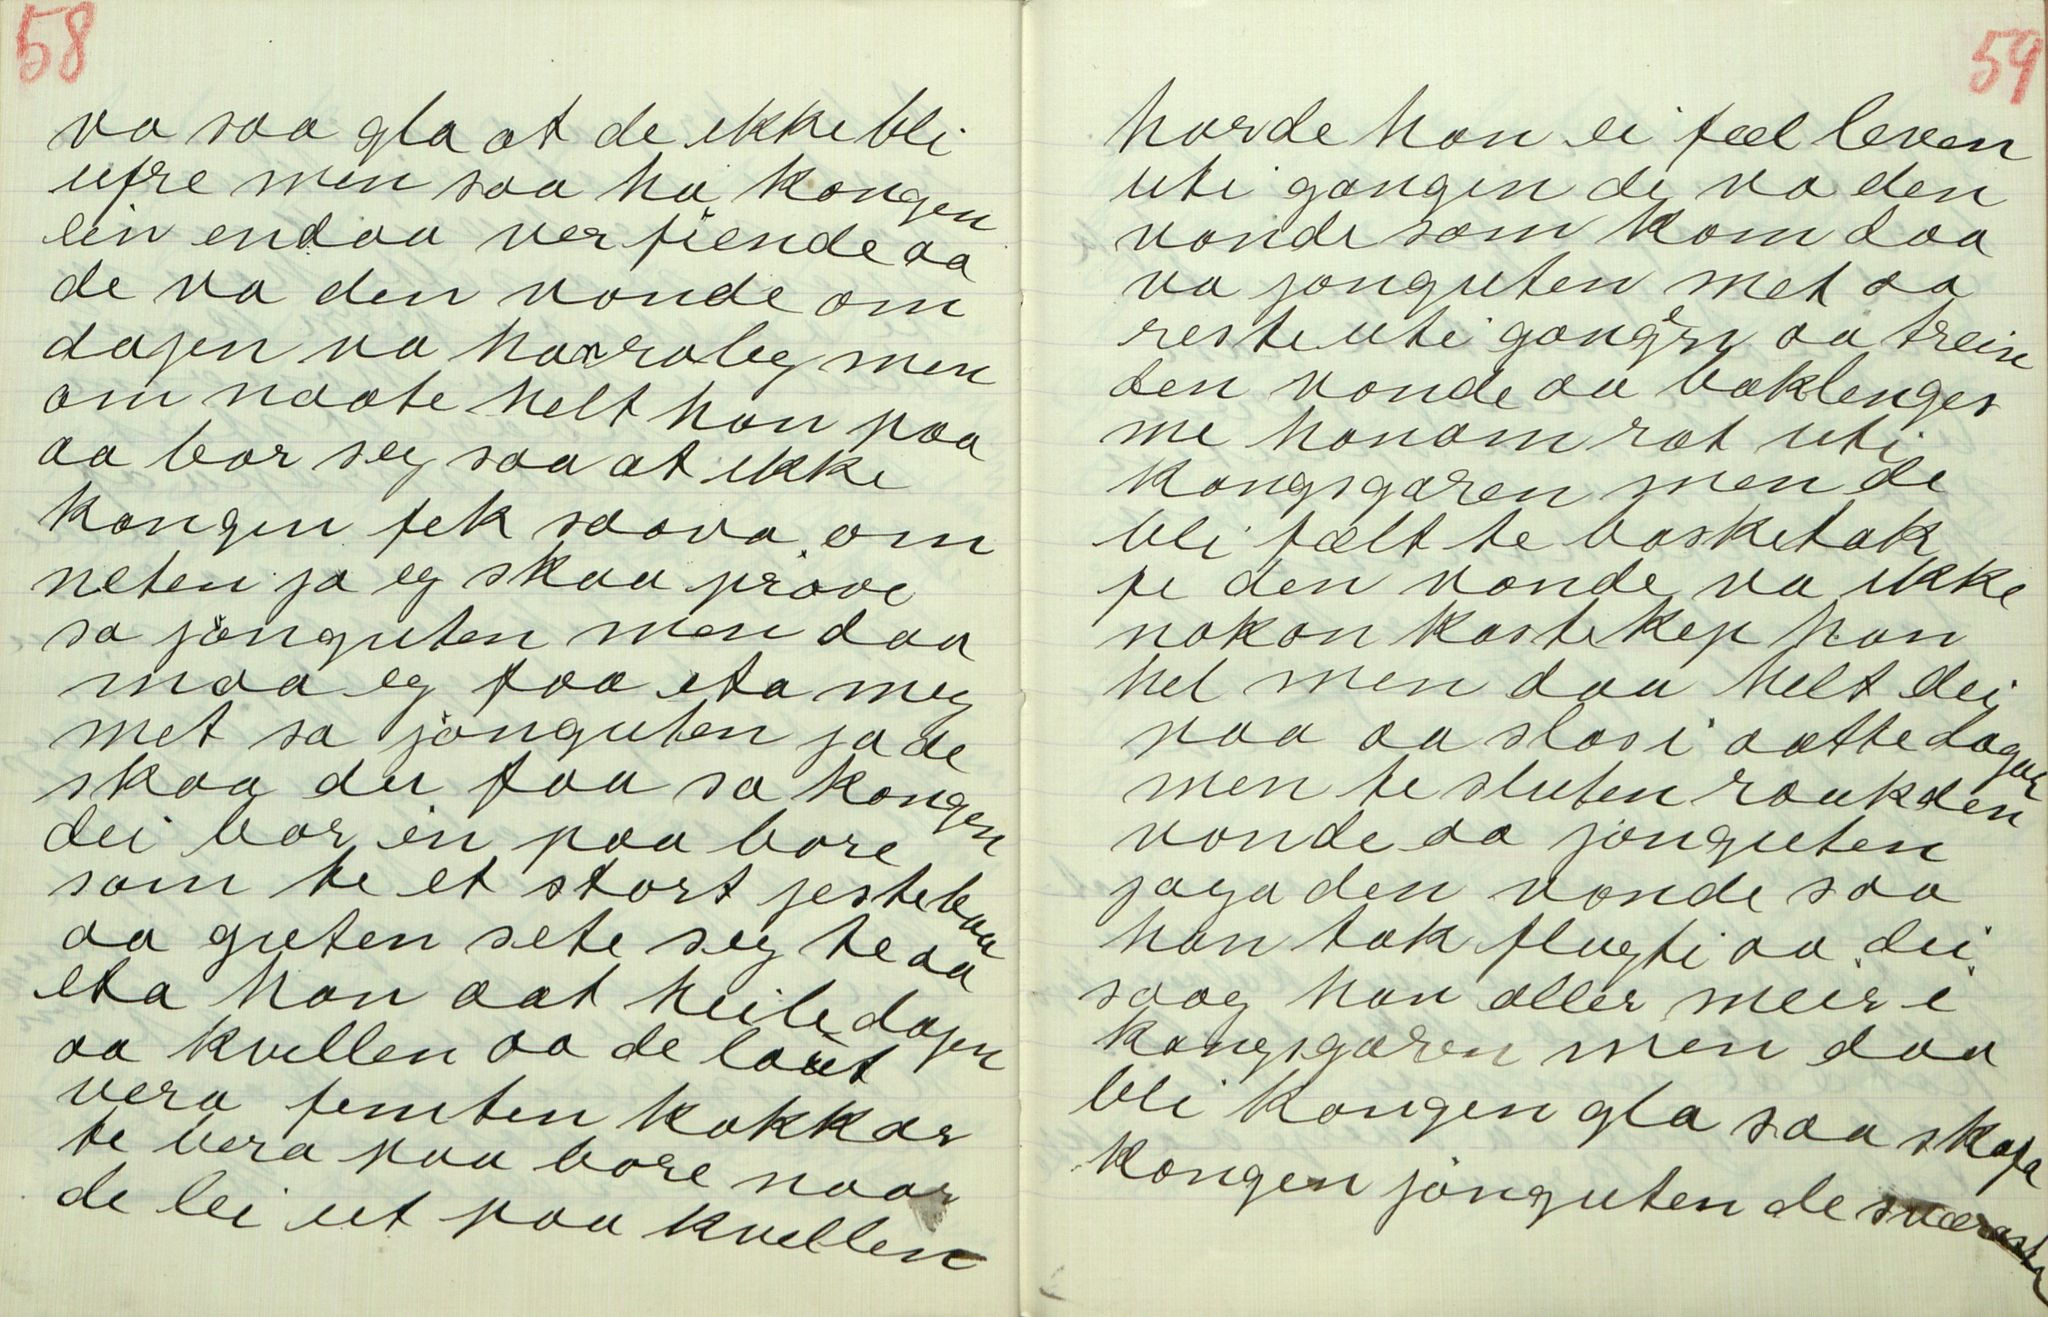 58
va saa gla at de ikke bli
ufre men saa ha kongen
ein endaa ver fiende aa
de va den vonde om
dagen va han roleg men
om naate helt han paa
aa bar seg saa at ikke
kongen fek saava om
neten ja eg skaa prøve
sa jønguten men daa
maa eg faa eta meg
met sa jønguten ja de
skaa du faa sa kongen
dei bar in paa bore
som te et stort jestebaa
aa guten sete seg te aa
eta han aat heile dagen
aa kvellen aa de laut
vera femten kokkar
te bera paa bore naar
de lei ut paa kvellen
59
hørde han ei fæl leven
uti gangen de va den
vonde som kom daa
va jønguten met aa
reste uti gangen aa trein
den vonde aa baklenges
me honom rat uti
kongsgaren men de
bli fælt te basketak
fe den vonde va ikke
nokon kastekep han
hel men daa helt dei
paa aa slas i aatte dagar
men te sluten rauk den
vonde aa jønguten
jaga den vonde saa
han tok flugti aa dei
saag han aller meir i
kongsgaren men daa
bli kongen gla saa skafa
kongen jønguten de sværaste